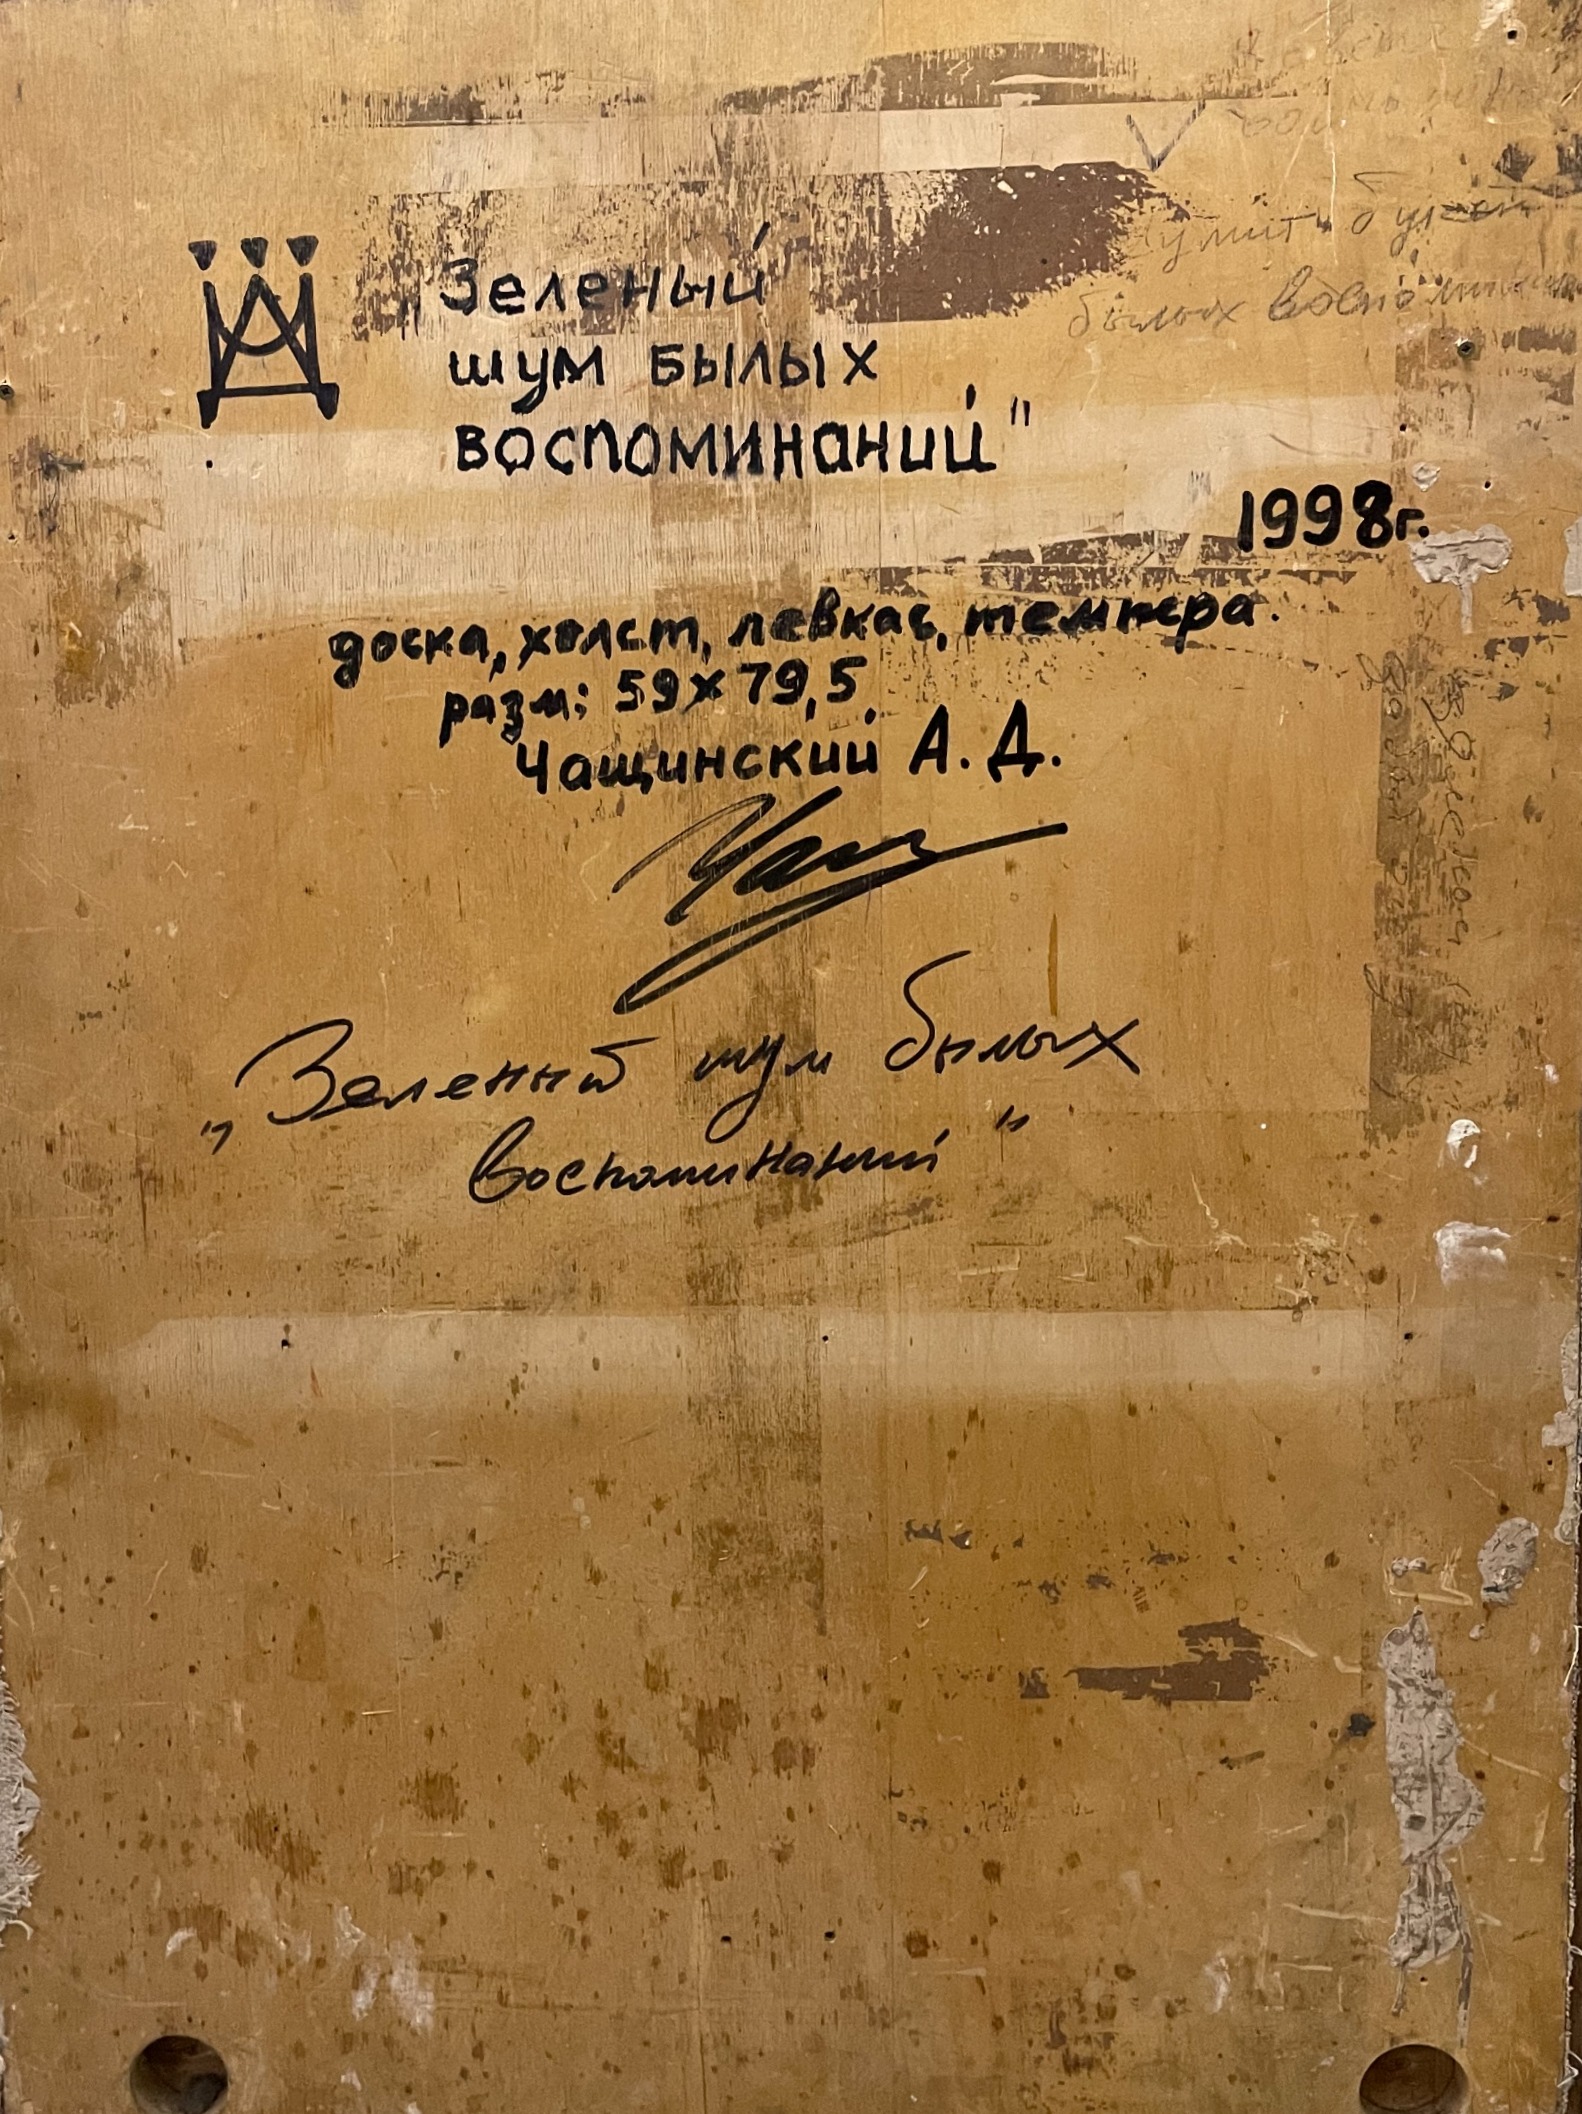 „Зеленый
шум былых
воспоминаний"
1998г.
доска, холст, левкас, темпера.
разм: 59х79,5
Чащинский А. Д.
„Зеленый шум былых
воспоминаний"
букет
былых воспоминаний